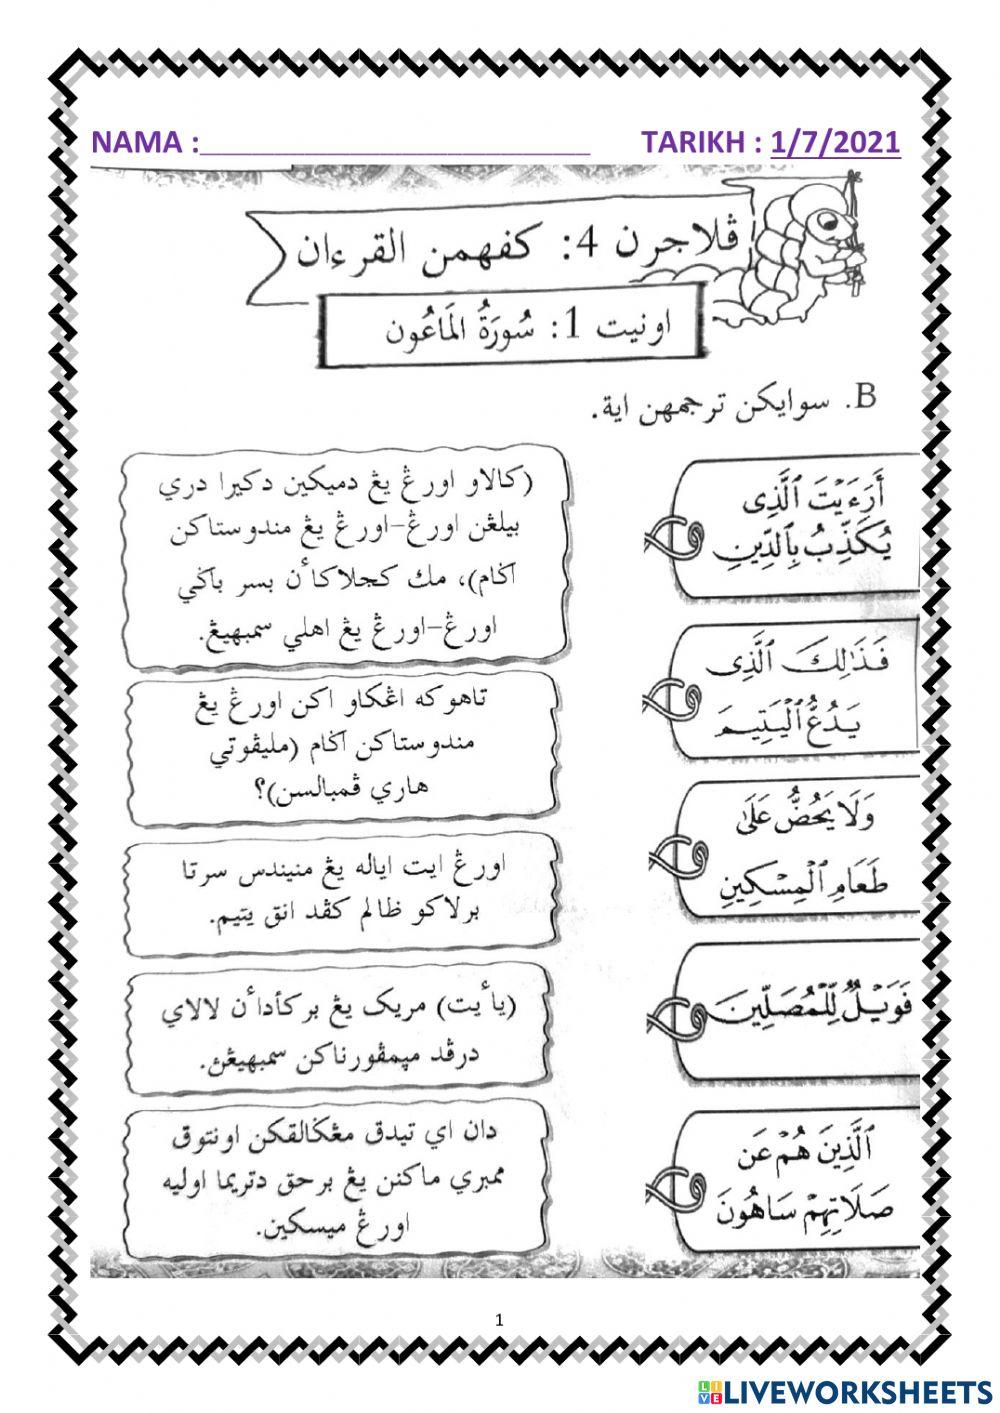 NAMA :
TARIKH : 1/7/2021
ڤلاجرن 4: کفهمن القرءان
اونيت 1: سُورَةُ المَاعُون
B. سوايكن ترجمهن اية.
أَرَءَيْتَ ٱلَّذِى
يُكَذِّبُ بِٱلدِّينِ
فَذَٰلِكَ ٱلَّذِى
يَدُعُّ ٱلْيَتِيمَ
وَلَا يَحُضُّ عَلَىٰ
طَعَامِ ٱلْمِسْكِينِ
فَوَيْلٌ لِّلْمُصَلِّينَ
ٱلَّذِينَ هُمْ عَن
صَلَاتِهِمْ سَاهُونَ
(كالاو اورڠ يڠ دميكين دكيرا دري
بيلڠن اورڠ-اورڠ يڠ مندوستاكن
اݢام)، مك كچلاكأن بسر باݢي
اورڠ-اورڠ يڠ اهلي سمبهيڠ.
تاهوكه اڠكاو اكن اورڠ يڠ
مندوستاكن اݢام (مليڤوتي
هاري ڤمبالسن)؟
اورڠ ايت اياله يڠ منيندس سرتا
برلاكو ظالم كڤد انق يتيم.
(يأيت) مريک يڠ بركأدأن لالاي
درڤد ميمڤورناكن سمبهيڠڽ.
دان اي تيدق مڠݢالقكن اونتوق
ممبري ماكنن يڠ برحق دتريما اوليه
اورڠ ميسكين.
1
LIVEWORKSHEETS